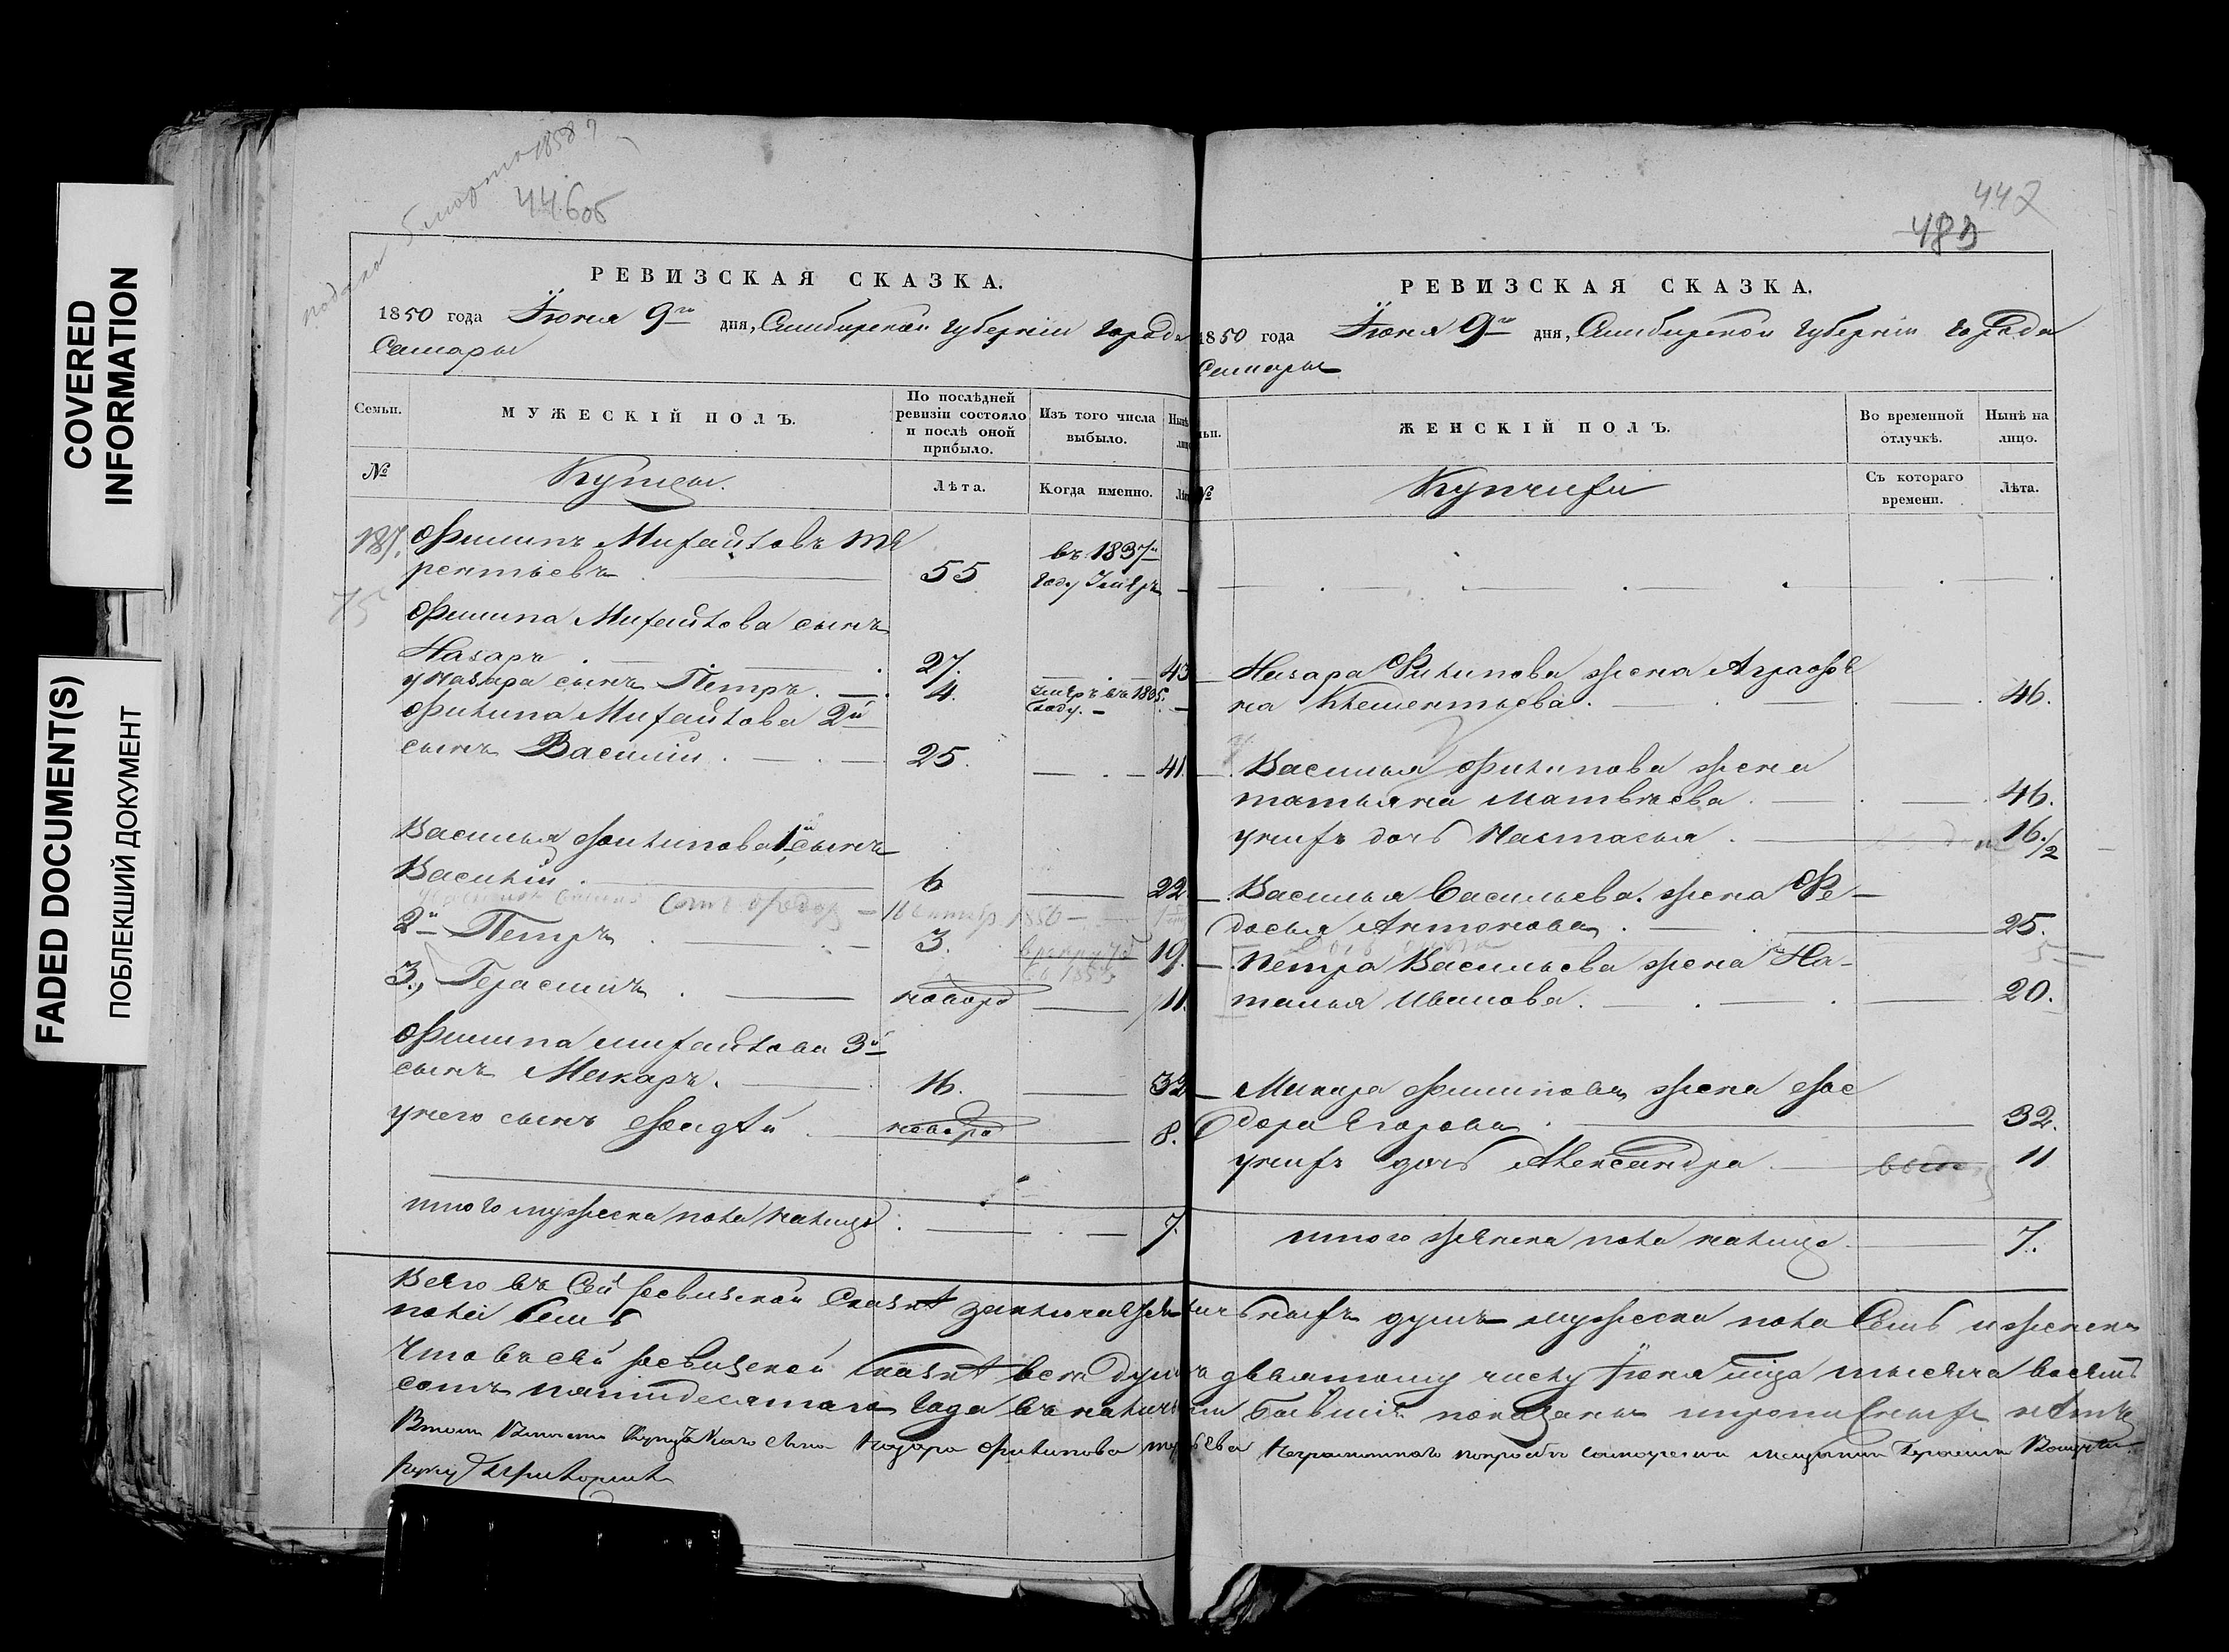 COVERED
INFORMATION
FADED DOCUMENT(S)
ПОБЛЕКШИЙ ДОКУМЕНТ
446об
РЕВИЗСКАЯ СКАЗКА.
1850 года Іюня 9го дня, Симбирской Губерніи города
Самары
Семьи.
МУЖЕСКІЙ ПОЛЪ.
По послѣдней ревизіи состояло и послѣ оной прибыло.
Изъ того числа выбыло.
Нынѣ
№
Купцы.
Лѣта.
Когда именно.
187. Филипъ Михайловъ Те
рентьевъ 55 въ 1837м году умеръ
Филипа Михайлова сынъ
Назаръ 27. 43
у Назара сынъ Петръ. 4. умеръ въ 1835. году.
Филипа Михайлова 2й
сынъ Василій 25. 41.
Василья Филипова 1й сынъ
Василій 6 22
сынъ Федоръ
2й Петръ 3. 19.
3., Герасимъ новорд 11.
Филипа Михайлова 3й
сынъ Макаръ. 16. 32
у него сынъ новорд 8.
итого мужеска пола налицо 7.
447
483
РЕВИЗСКАЯ СКАЗКА.
1850 года Іюня 9го дня, Симбирской Губерніи города
Самары
ЖЕНСКІЙ ПОЛЪ.
Во временной отлучкѣ.
Нынѣ на лицо.
№
Купчихи
Съ котораго времени.
Лѣта.
Назара Филипова жена Аграфе
на Клементьева. 46.
Василья Филипова жена
татьяна Матвѣева. 46.
у нихъ дочь Настасья. 16 1/2
Василья Васильева. жена Фе-
досья Антонова. 25.
Петра Васильева жена На-
талья Иванова. 20.
Макара Филипова жена Фео
дора Егорова 32.
у нихъ дочь Александра. 11
итого женска пола налицо 7.
Всего въ Сей ревизской Сказкѣ заключается наличныхъ душъ мужеска пола Семь и женска
пола Семь
Что въ сей ревизской Сказкѣ всѣ души къ девятому числу Іюня мца тысяча восемь
сотъ пятидесятаго Года въ наличіи бывшія показаны и прописныхъ нѣтъ
Назара Филипова